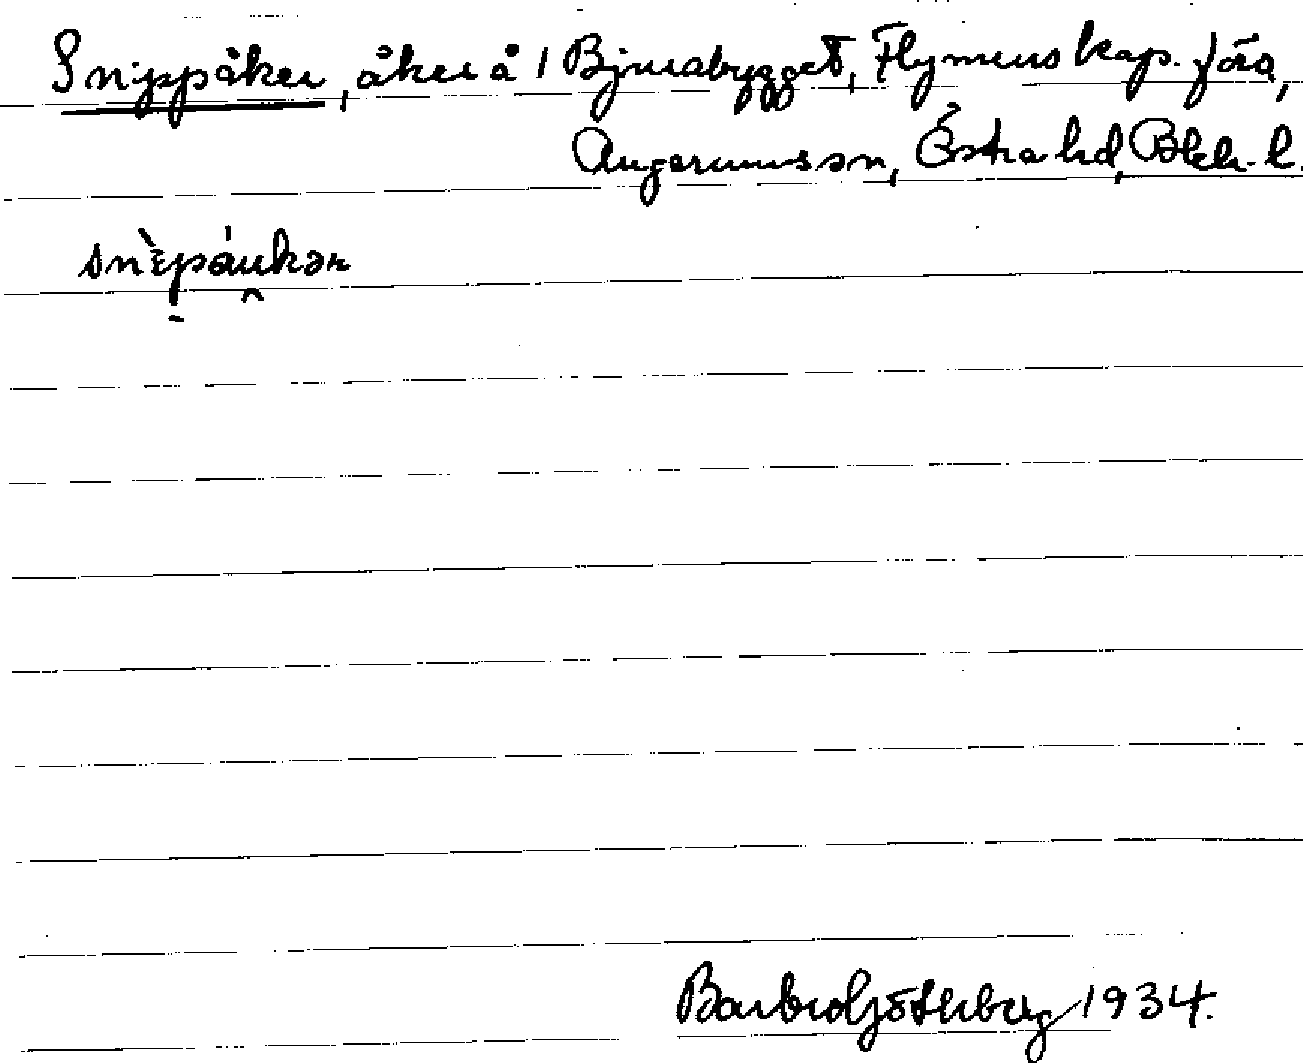 Snippåker, åker å 1 Björsabygget, Flymens kap. förs,
Augerums sn, Östra hd, Blek. l.
snìpáukər
Barbro Götherberg 1934.